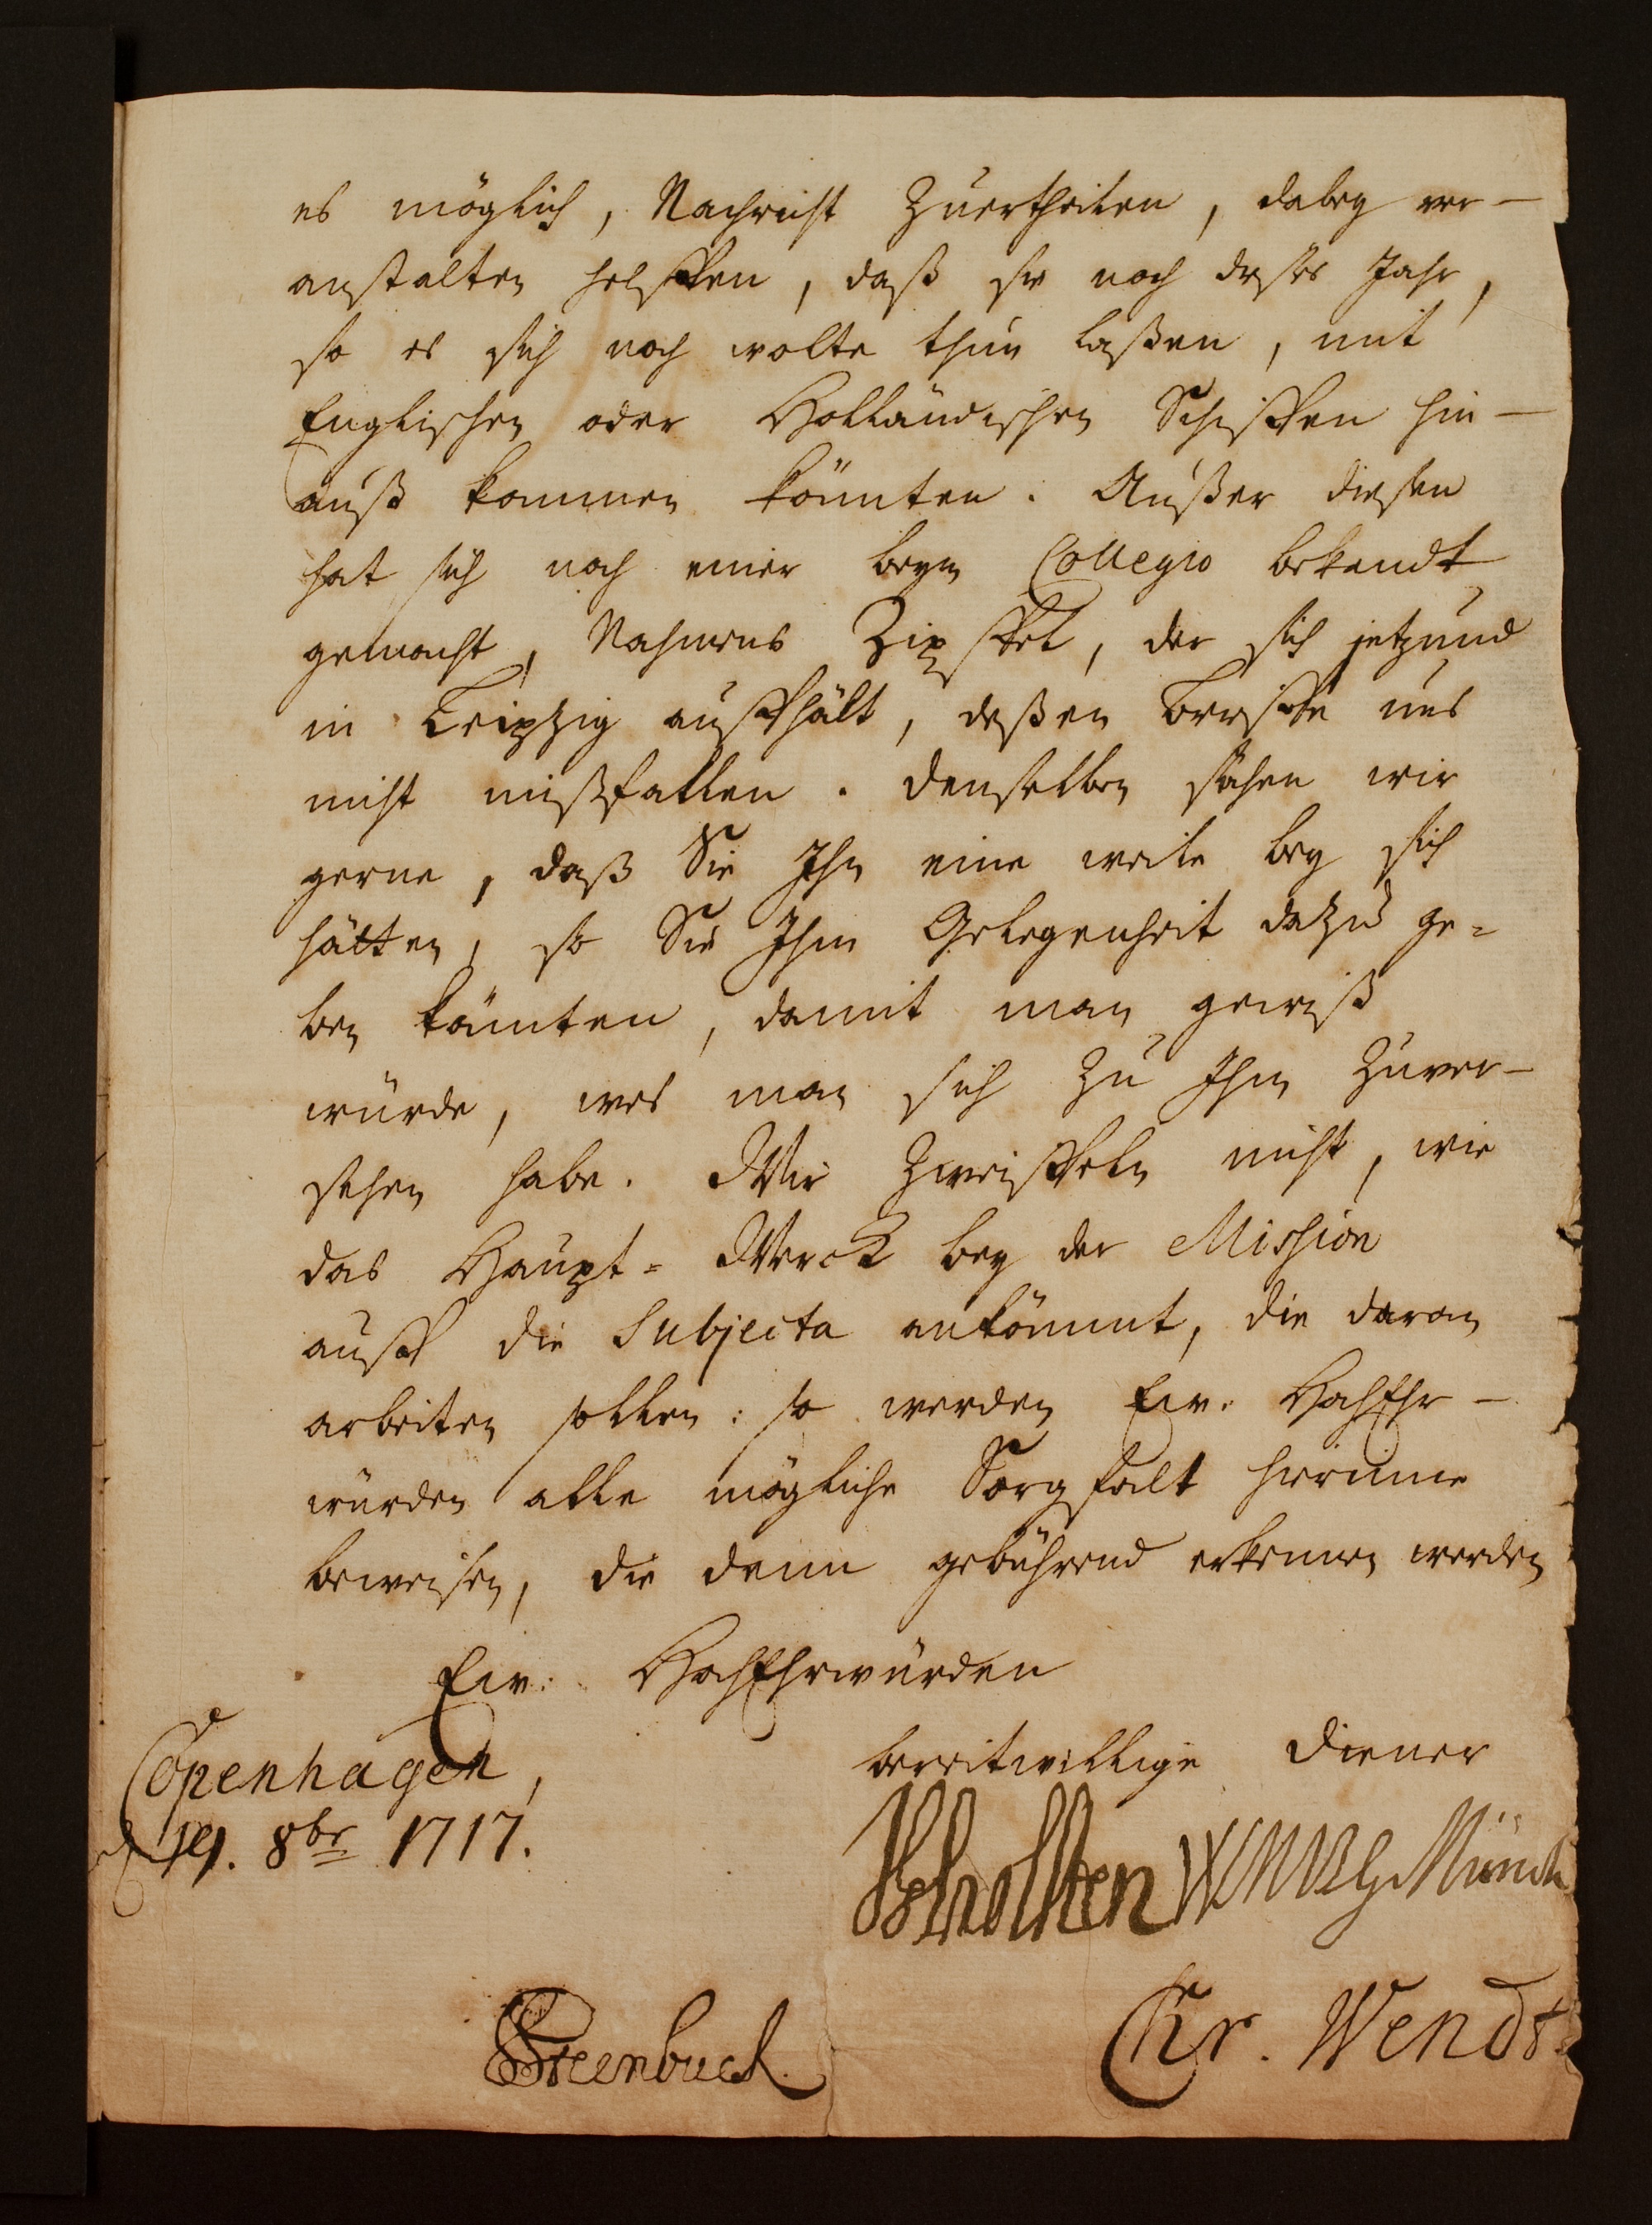 es möglich, Nachricht zuertheilen, dabey ver-
anstalten helffen, daß sie noch dieses Jahr,
so es sich noch wolte thun laßen, mit
Englischen oder Holländischen Schiffen hin-
auß kommen könnten. Außer diesen
hat sich noch einer beym Collegio bekandt
gemacht, Nahmens Zipffel, der sich jetzund
in Leipzig auffhält, deßen Brieffe uns
nicht mißfallen. Denselben sähen wir
gerne, daß Sie Ihn eine weile bey sich
hätten, so Sie Ihm Gelegenheit dazu ge=
ben könnten, damit man gewiß
würde, wes man sich zu Ihm zuver-
sehen habe. Wir zweiffeln nicht, wie
das Haupt=Werck bey der Mission
auff die Subjecta ankömmt, die daran
arbeiten sollen: so werden Ew. HochEhr-
würden alle mögliche Sorgfalt hierinne
beweisen, die denn gebührend erkennen werden
Ew: HochEhrwürden
bereitwillige Diener
Copenhagen,
d 19. 8br 1717.
JScholten WMBGMünch
Steenbuch.
Chr. Wendt.